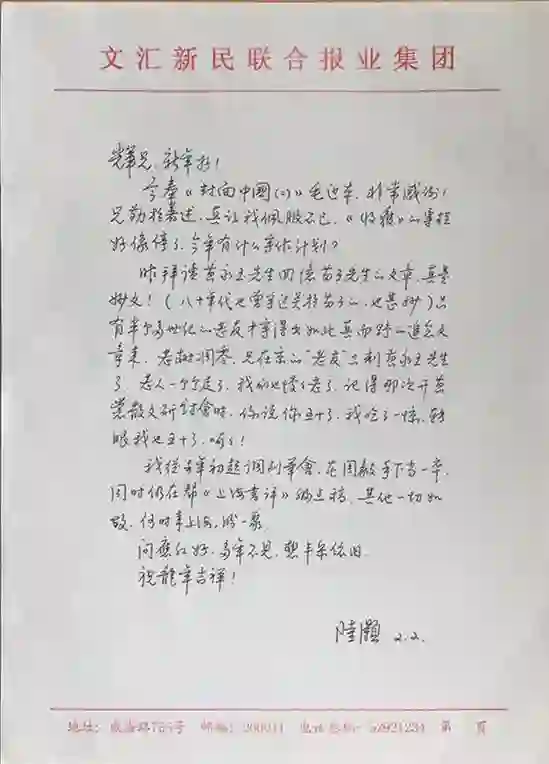 文汇新民联合报业集团
光华兄，新年好！
今奉《封面中国(二)》毛边本，非常感谢！
兄勤於著述，真让我佩服不已，《收穫》的专栏
好像停了，今年有什么写作计划？
昨拜读黄永玉先生回忆苗子先生的文章，真是
妙文！（八十年代也曾写过关於苗子的，也甚妙）只
有半个多世纪的老友才写得出如此真而野的追念文
章来。老树凋零，兄在京的"老友"只剩黄永玉先生
了，老人一个个走了，我们也慢慢老了，记得那次开
散文研讨会时，你说你五十了，我吃了一惊，转
眼我也五十了，呵呵！
我从去年初起调到笔会，在周毅手下当一卒，
同时仍在帮《上海书评》编点稿，其他一切如
故，何时来上海，盼一聚。
问应红好，多年不见，想丰采依旧。
祝龙年吉祥！
陆灏 2.2.
地址：威海路755号 邮编：200041 电话总机：52921234 第 页